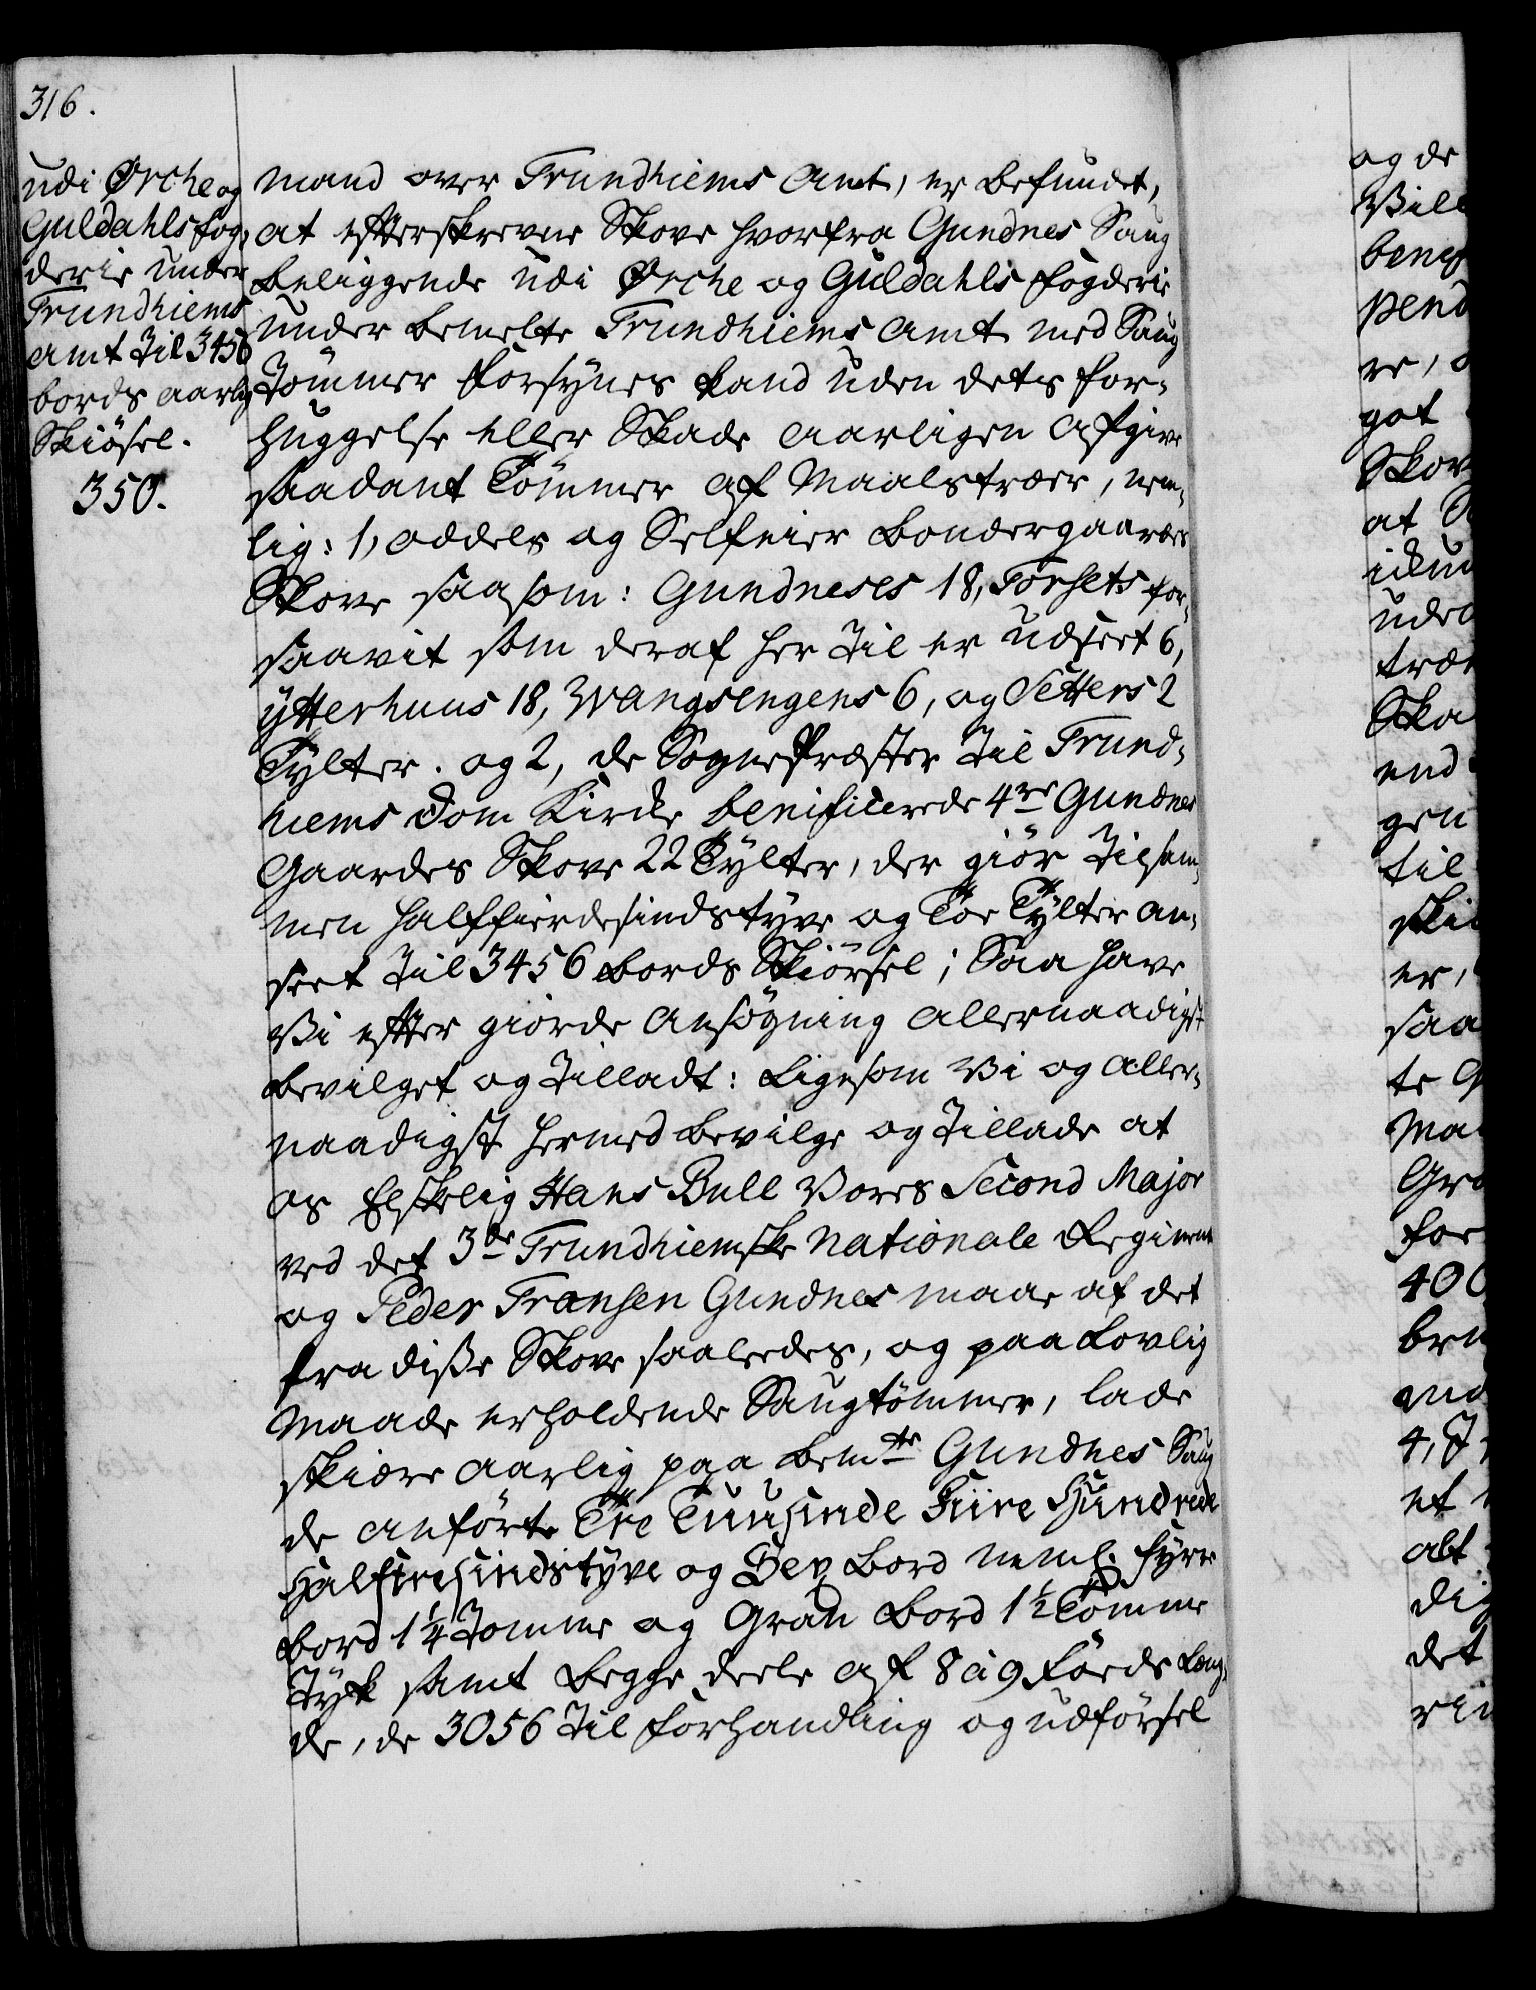 316.
udi Ørche og
Guldahls fog,
derie under
Trundhiems
Amt til 3456
bords aarlig
Skiösel.
350.
mand over Trundhiems Amt, er befundet,
at efterskrevne Skove hvorfra Gundnes Saug
beliggende udi Ørche og Guldahls fogderie
under bemelte Trundhiems Amt med Saug
Tömmer forsynes kand uden dets for-
huggelse eller Skade aarligen afgive
saadant Tömmer af Maalstræer, nem-
lig: 1, oddels og Selfeier bondergaarders
Skove saasom: Gundneses 18, Forsets for-
saavit som deraf her til er udseet 6,
ytterhuus 18, Wangsengens 6, og Setters 2
Tylter. og 2, de Sognepræster til Trund-
hiems Dom Kirke benificerede 4re Gundnes
Gaardes Skove 22 Tylter, der giör tilsam-
men halffierdesindstyve og Toe Tylter an-
seet til 3456 bords Skiörsel; Saa have
Vi efter giorde Ansögning allernaadigst
bevilget og tilladt: ligesom Vi og aller-
naadigst hermed bevilge og tillade at
os Elskelig Hans Bull Vores Second Major
ved det 3de Trundhiemske Nationale Regiment
og Peder Fransen Gundnes maae af det
fra disse Skove saaledes, og paa lovlig
Maade erholdende Saugtömmer, lade
skiære aarlig paa bemte Gundnes Saug
de anförte Tre Tuusinde Fiire Hundrede
Halftresindstyve og Sex bord neml. fyrre
bord 1 1/4 Tomme og Gran bord 1 1/2 Tomme
Tyk samt begge deele af 8 à 9 födes læng-
de, de 3056 til forhandling og udförsel
og de
Vill
benef
pend
re,
got
Skov
at
ude
træ
Ska
end
gen
til
ski
er,
saa
te
Ma
Gra
for
400
bru
4,
et
alt
dig
det